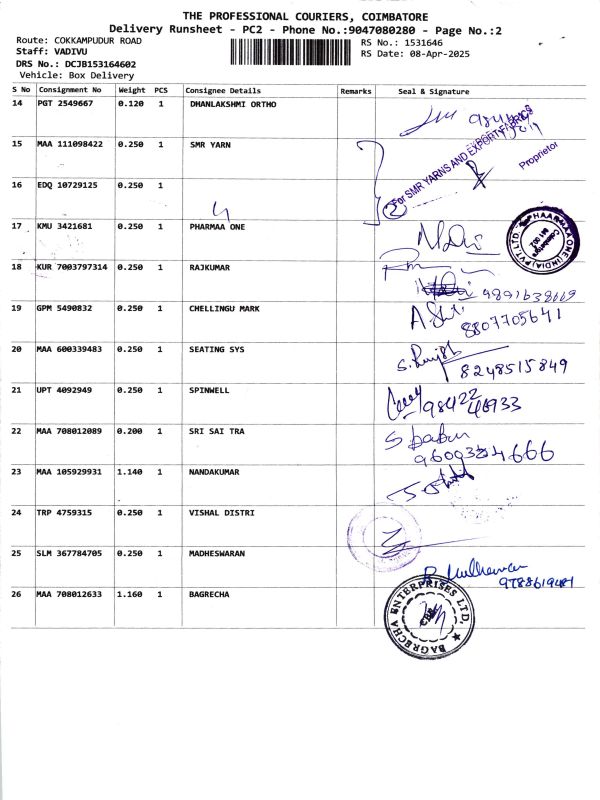 THE PROFESSIONAL COURIERS, COIMBATORE
Delivery Runsheet - PC2 - Phone No.:9047080280 - Page No.:2
Route: COKKAMPUDUR ROAD
Staff: VADIVU
DRS No.: DCJB153164602
Vehicle: Box Delivery
RS No.: 1531646
RS Date: 08-Apr-2025
S No Consignment No Weight PCS Consignee Details Remarks Seal & Signature
14 PGT 2549667 0.120 1 DHANLAKSHMI ORTHO
15 MAA 111098422 0.250 1 SMR YARN
For SMR YARNS AND EXPORT FABRICS
Proprietor
16 EDQ 10729125 0.250 1
2
4
17 KMU 3421681 0.250 1 PHARMAA ONE
PHAARMAA ONE (INDIA) PVT. LTD.
Coimbatore
641 002
18 KUR 7003797314 0.250 1 RAJKUMAR
19 GPM 5490832 0.250 1 CHELLINGU MARK
8807705641
20 MAA 600339483 0.250 1 SEATING SYS
8248515849
21 UPT 4092949 0.250 1 SPINWELL
98422
46933
22 MAA 708012089 0.200 1 SRI SAI TRA
S babu
23 MAA 105929931 1.140 1 NANDAKUMAR
24 TRP 4759315 0.250 1 VISHAL DISTRI
25 SLM 367784705 0.250 1 MADHESWARAN
26 MAA 708012633 1.160 1 BAGRECHA
BAGRECHA ENTERPRISES LTD.
CBE